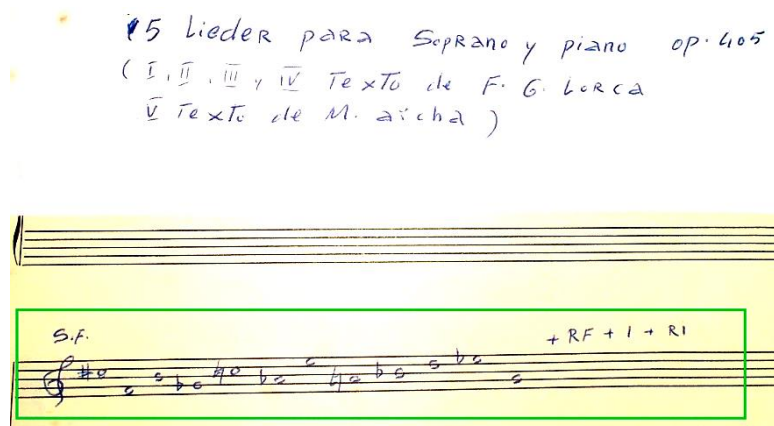 5 Lieder para Soprano y piano op. 405
( I, II, III, y IV Texto de F. G. Lorca
V Texto de M. aïcha )
S.F.
+ RF + I + RI